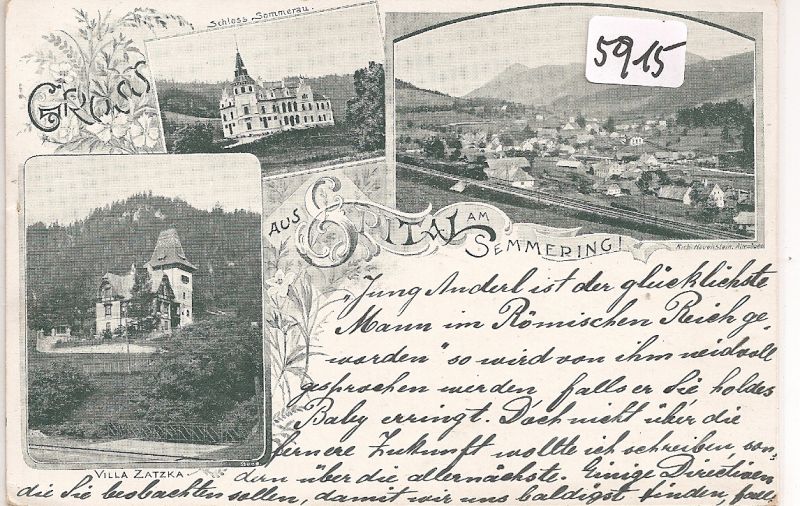 Schloss Sommerau.
5915
GRUSS
AUS SPITAL AM
SEMMERING!
VILLA ZATZKA
„Jung Anderl ist der glücklichste
Mann im Römischen Reich ge-
worden" so wird von ihm neidvoll
gesprochen werden falls er Sie holdes
Baby erringt. Doch nicht über die
fernere Zukunft wollte ich schreiben, son-
dern über die allernächste. Einige Directiven
die Sie beobachten sollen, damit wir uns baldigst finden, falls